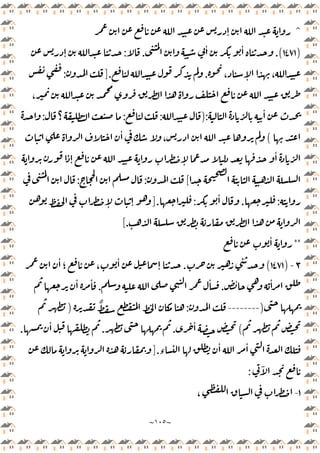 ^ رواية عبيد الله ابن إدريس عن عبيد الله عن نافع عن ابن عمر
(١٤٧١). وحدثناه أبو بكر بن أبي شيبة وابن المثنى. قالا: حدثنا عبدالله بن إدريس عن
عبيدالله، بهذا الإسناد، نحوه. ولم يذكر قول عبيدالله لنافع. [قلت المدون: ففي نفس
طريق عبيد الله عن نافع اختلف الرواة هذا الطريق فروي محمد بن عبدالله بن نمير،
يحدث عن أبيه بالزيادة التالية: (قال عبيدالله: قلت لنافع: ما صنعت التطليقة؟ قال: واحدة
اعتد بها ) ولم يروها عبد الله ابن ادريس، ولا شك في أن اختلاف الرواة علي اثبات
الزيادة أو حذفها عند مما يعد دليلا للإضطراب رواية عبيد الله عن نافع إذا قورن برواية
السلسلة الذهبية الثابتة الصحيحة جدا] قلت المدون: قال مسلم ابن الحجاج: قال ابن المثنى في
روايته: فليرجعها. وقال أبو بكر: فليراجعها. [وهو إثبات لإضطراب في الحفظ يوهن
الرواية من هذا الطريق مقارنة بطريق سلسلة الذهب.]
** رواية أيوب عن نافع
٣ - (١٤٧١) وحدثني زهير بن حرب. حدثنا إسماعيل عن أيوب، عن نافع ؛ أن ابن عمر
طلق امرأته وهي حائض. فسأل عمر النبي صلى الله عليه وسلم. فأمره أن يرجعها ثم
يمهلها حتى(-------- قلت المدون: هنا مكان الخط المتقطع سقط تقديره ( تطهر ثم
تحيض ثم تطهر ثم) تحيض حيضة أخرى. ثم يمهلها حتى تطهر. ثم يطلقها قبل أن يمسها.
فتلك العدة التي أمر الله أن يطلق لها النساء. [وبمقارنة هذه الرواية برواية مالك عن
نافع نجد الآتي :
١- اضطراب في السياق اللفظي ،
~١٠٥~